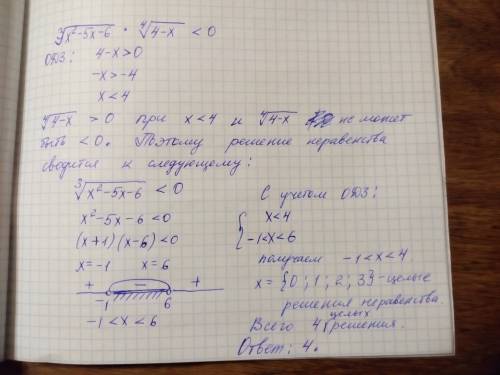 ∛(x²-5x-6) · ∜(4-x) < 0
ОДЗ: 4-x>0
-x>-4
x<4
∜(4-x) > 0 при x<4 и ∜(4-x) не может
быть <0. Поэтому решение неравенства
сводится к следующему:
∛(x²-5x-6) < 0
x²-5x-6<0
(x+1)(x-6)<0
x=-1 x=6
+ - +
-1 6
-1<x<6
С учетом ОДЗ:
{ x<4
-1<x<6
получаем -1<x<4
x={0; 1; 2; 3} - целые
решения неравенства
Всего 4 целых решения.
Ответ: 4.